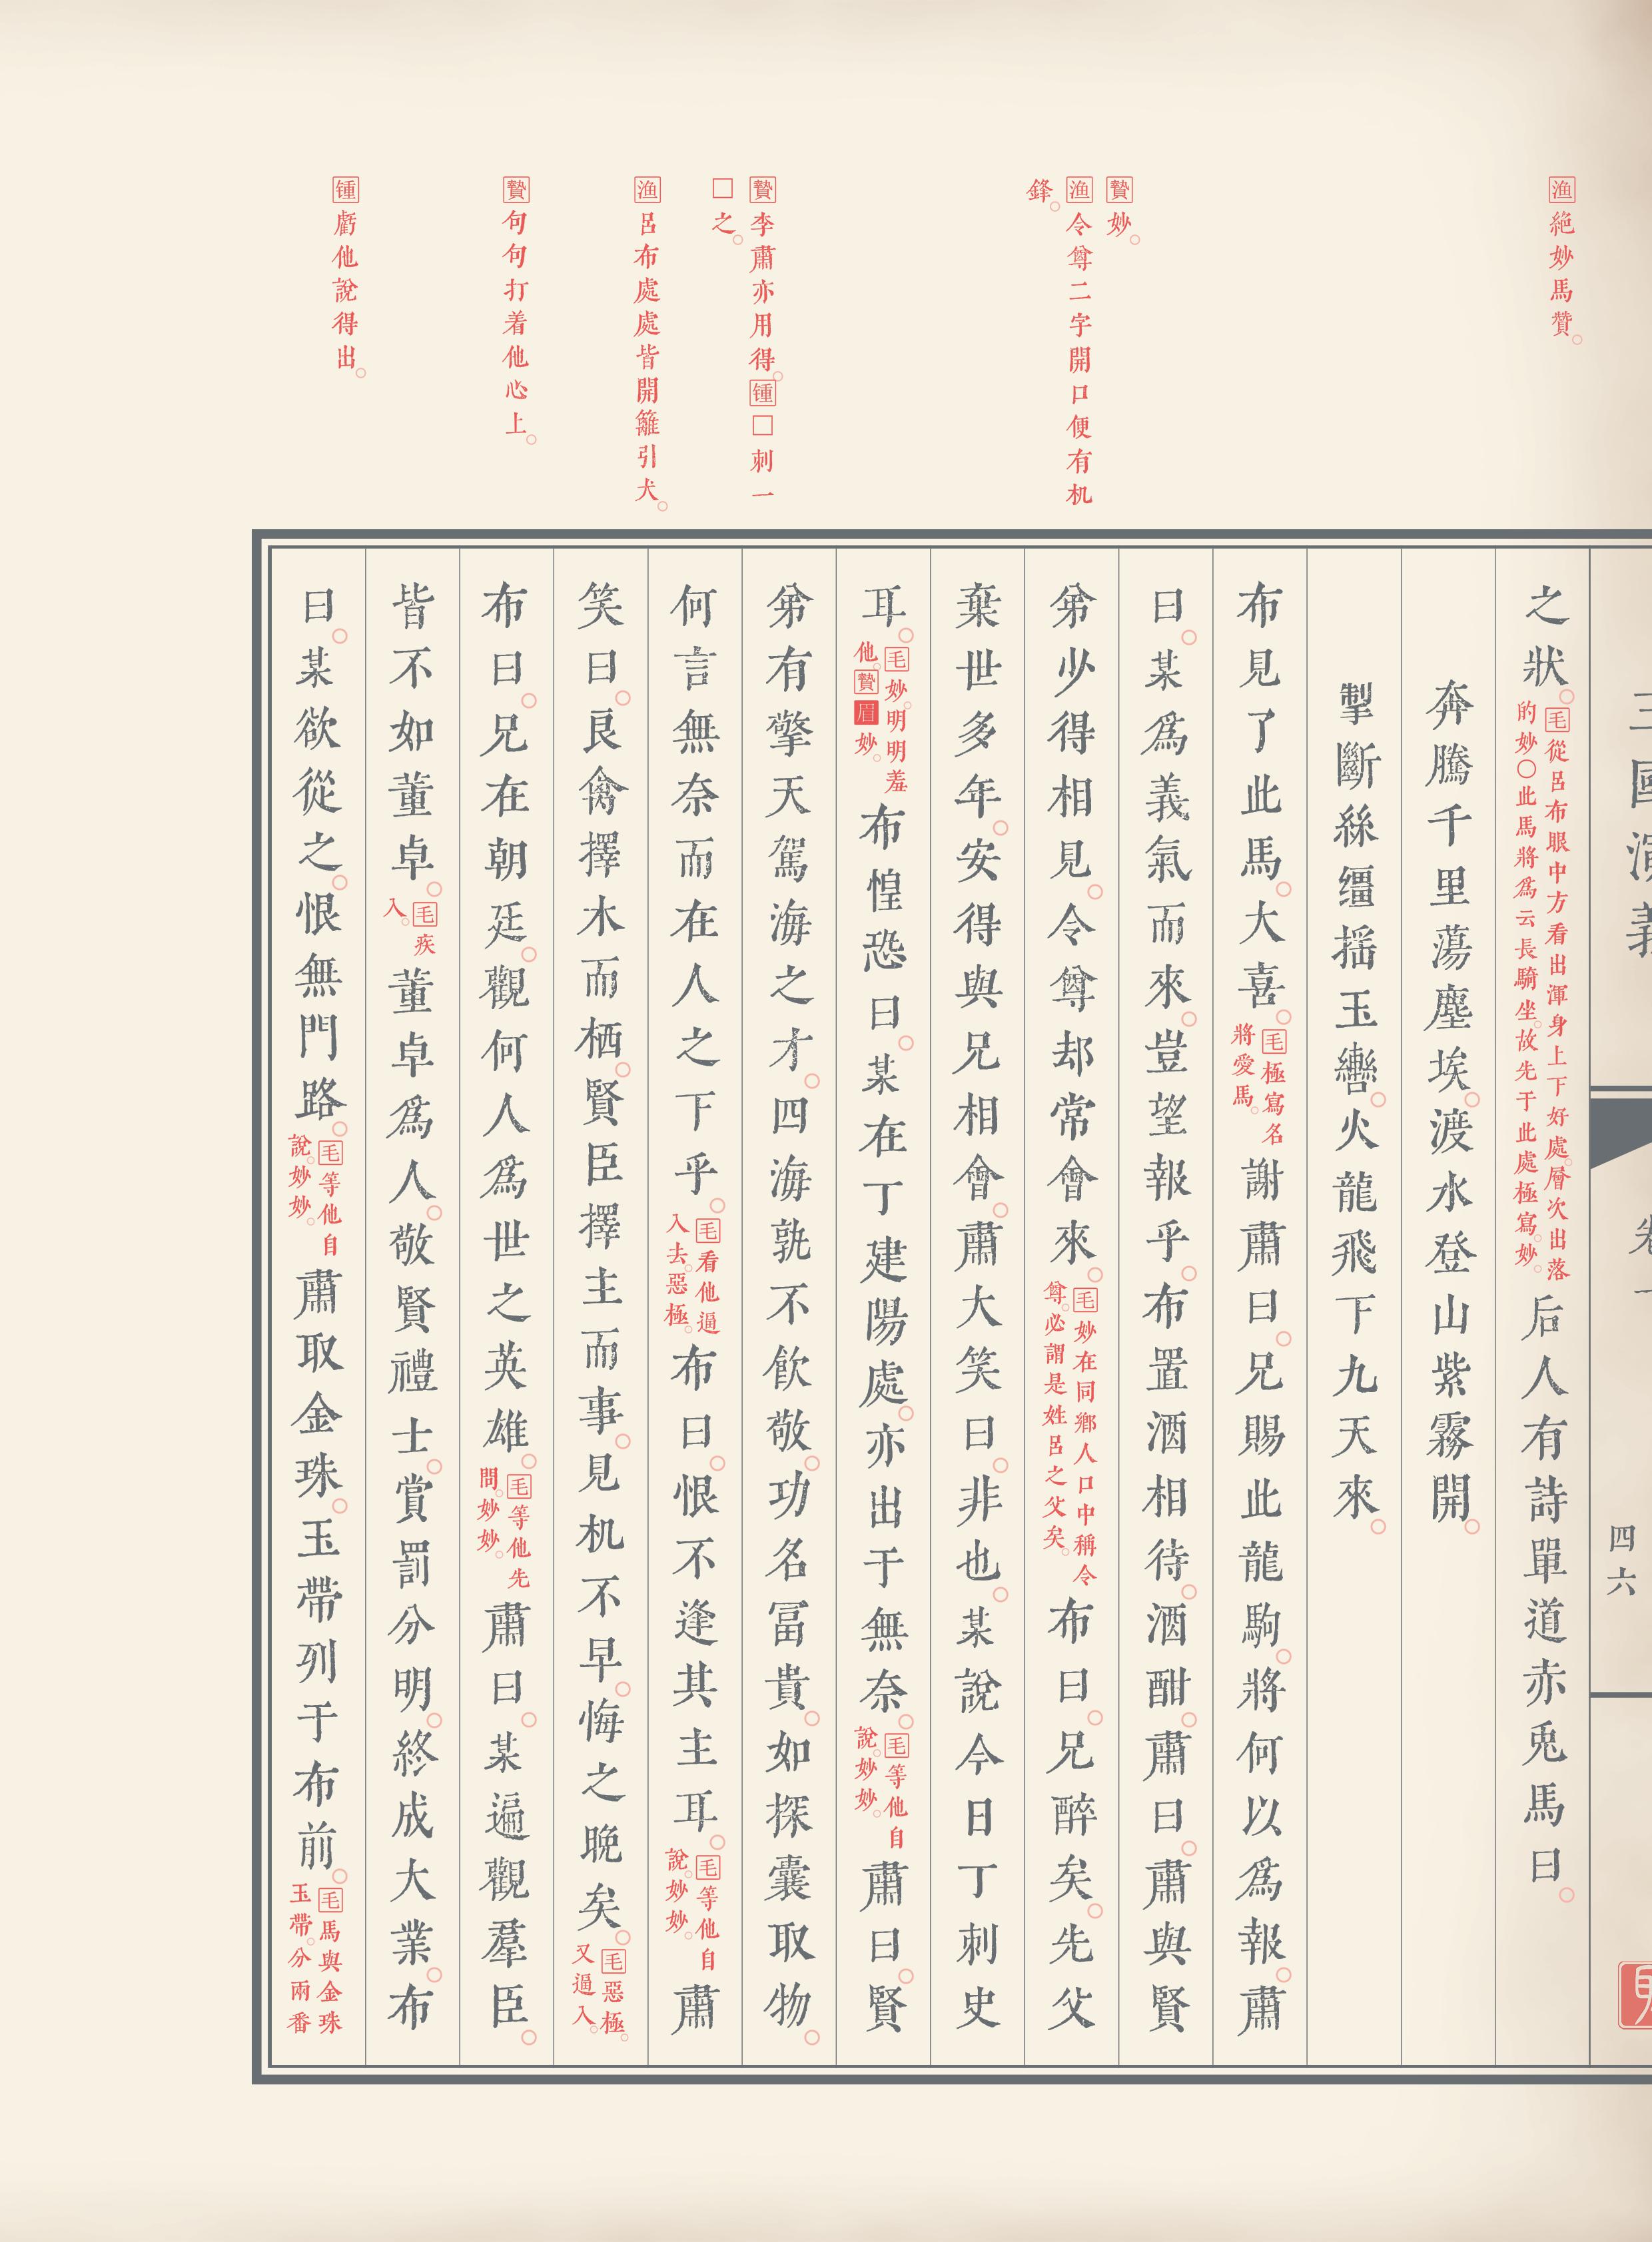 三國演義
卷一
四六
漁絶妙馬贊。
贄妙。
漁令尊二字開口便有机
鋒。
贄李肅亦用得。锺□刺一
□之。
漁呂布處處皆開籬引犬。
贄句句打着他心上。
锺虧他說得出。
之狀。毛從呂布眼中方看出渾身上下好處。層次出落的妙〇此馬將爲云長騎坐。故先于此處極寫。妙。后人有詩單道赤兎馬曰。
奔騰千里蕩塵埃。渡水登山紫霧開。
掣斷絲繮摇玉轡。火龍飛下九天來。
布見了此馬。大喜。毛極寫名將愛馬。謝肅曰。兄賜此龍駒。將何以爲報。肅
曰。某爲義氣而來。豈望報乎。布置酒相待。酒酣。肅曰。肅與賢
弟少得相見。令尊却常會來。毛妙在同鄉人口中稱令尊。必謂是姓呂之父矣。布曰。兄醉矣。先父
棄世多年。安得與兄相會。肅大笑曰。非也。某說今日丁刺史
耳。毛妙。明明羞他。贄眉妙。布惶恐曰。某在丁建陽處。亦出于無奈。毛等他自說。妙妙。肅曰。賢
弟有擎天駕海之才。四海孰不飲敬。功名冨貴。如探囊取物。
何言無奈而在人之下乎。毛看他逼入去。惡極。布曰。恨不逢其主耳。毛等他自說。妙妙。肅
笑曰。良禽擇木而栖。賢臣擇主而事。見机不早。悔之晚矣。毛惡極。又逼入。
布曰。兄在朝廷。觀何人爲世之英雄。毛等他先問。妙妙。肅曰。某遍觀羣臣。
皆不如董卓。毛疾入。董卓爲人。敬賢禮士。賞罰分明。終成大業。布
曰。某欲從之。恨無門路。毛等他自說。妙妙。肅取金珠。玉帶列于布前。毛馬與金珠玉帶。分兩番